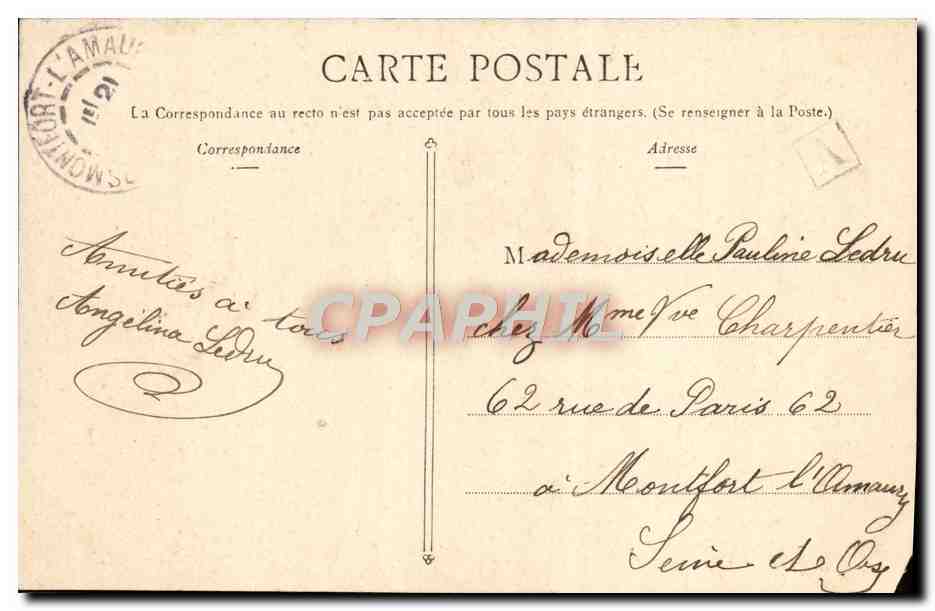 MONTFORT-L'AMAU
21
CARTE POSTALE
La Correspondance au recto n'est pas acceptée par tous les pays étrangers. (Se renseigner à la Poste.)
Correspondance
Adresse
A
Amitiés à tous
Angélina Ledru
Mademoiselle Pauline Ledru
chez Mme Vve Charpentier
62 rue de Paris 62
à Montfort l'Amaury
Seine et Oise
CPAPHIL